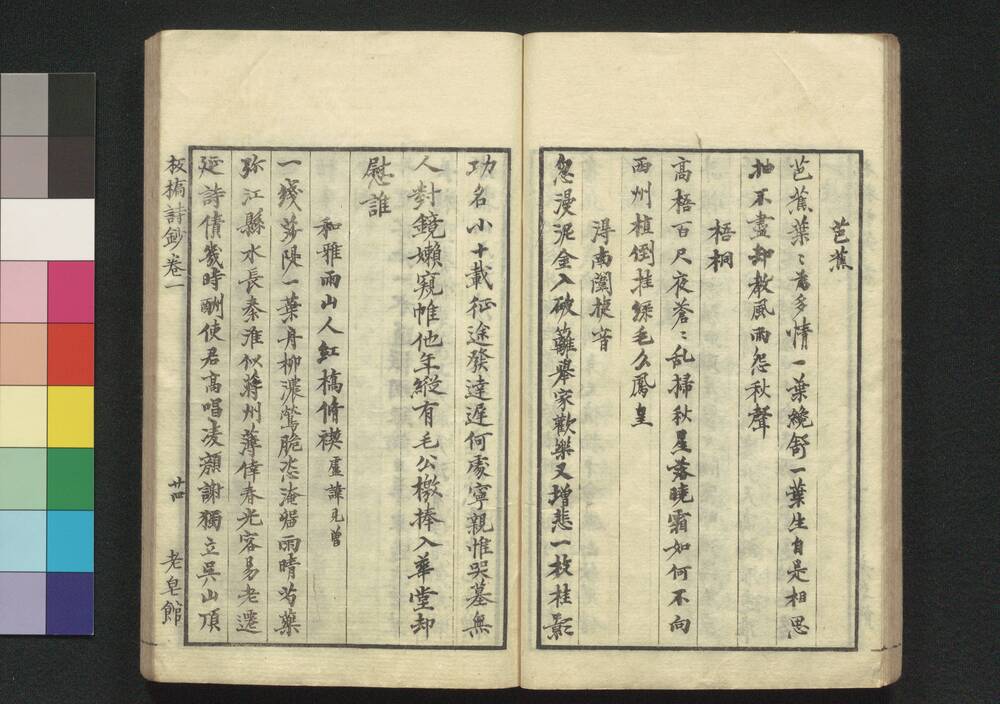 芭蕉
芭蕉葉〻為多情一葉纔舒一葉生自是相思
抽不盡却教風雨怨秋聲
梧桐
高梧百尺夜蒼〻乱掃秋星落曉霜如何不向
西州植倒挂綠毛么鳳皇
得南闈捷音
忽漫泥金入破籬舉家歡樂又增悲一枝桂影
功名小十載征途發達遲何處寧親惟哭墓無
人對鏡嬾窺帷他年縱有毛公檄捧入華堂却
慰誰
和雅雨山人紅橋脩禊盧諱見曾
一綫莎隄一葉舟柳濃鶯脆恣淹留雨晴芍藥
弥江縣水長秦淮似蔣州薄倖春光容易老遷
延詩債幾時酬使君高唱凌顏謝獨立吳山頂
板橋詩鈔卷一
廿四
老皂館